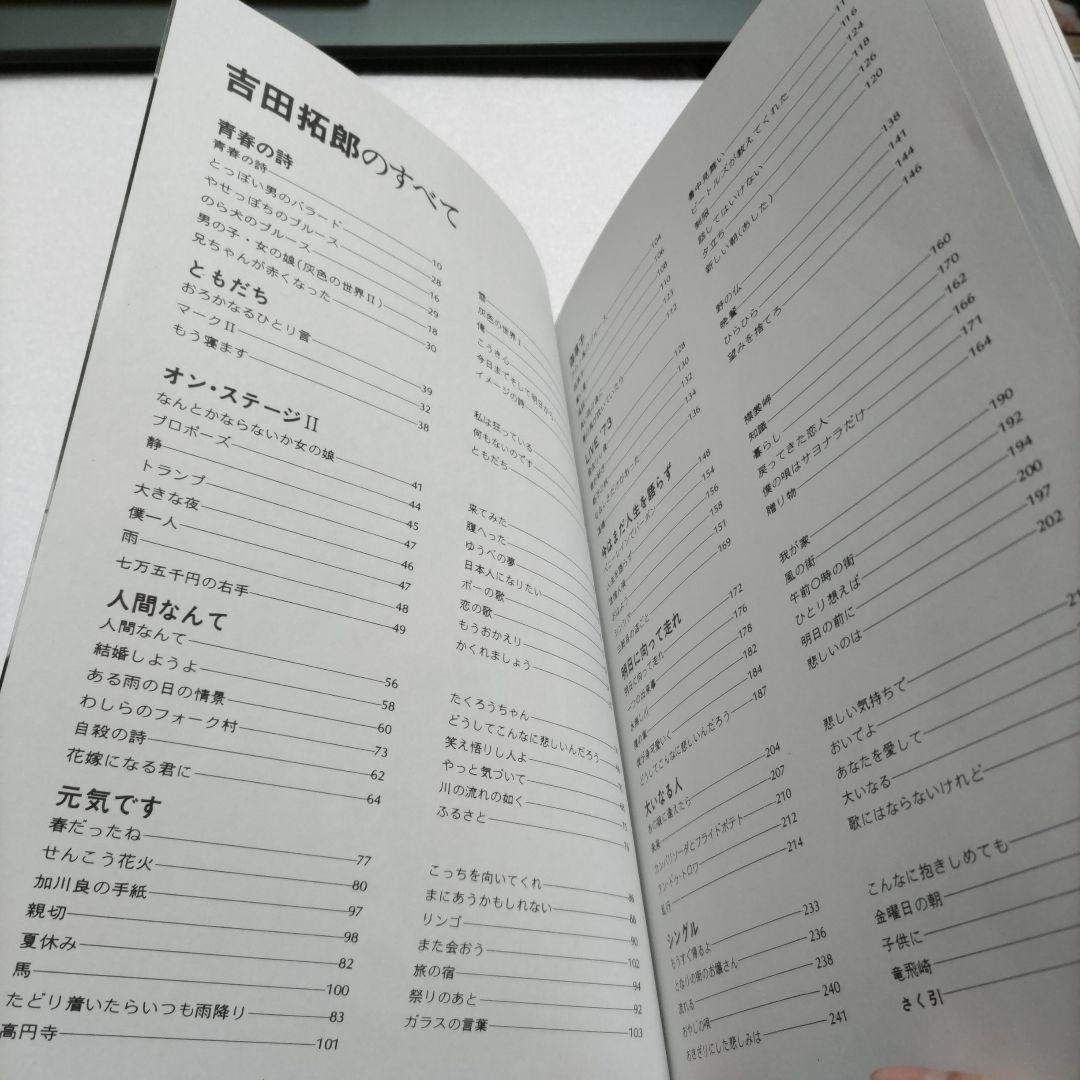 吉田拓郎のすべて
青春の詩
青春の詩 10
とっぽい男のバラード 28
やせっぽちのブルース 16
のら犬のブルース 29
男の子・女の娘(灰色の世界Ⅱ) 18
兄ちゃんが赤くなった 30
ともだち
おろかなるひとり言 39
マークⅡ 32
もう寝ます 38
オン・ステージⅡ
なんとかならないか女の娘 41
プロポーズ 44
静 45
トランプ 47
大きな夜 46
僕一人 47
雨 48
七万五千円の右手 49
人間なんて
人間なんて 56
結婚しようよ 58
ある雨の日の情景 60
わしらのフォーク村 73
自殺の詩 62
花嫁になる君に 64
元気です
春だったね 77
せんこう花火 80
加川良の手紙 97
親切 98
夏休み 82
馬 100
たどり着いたらいつも雨降り 83
高円寺 101
雪
灰色の世界Ⅰ
俺
こうき心
今日までそして明日から
イメージの詩
私は狂っている
何もないのです
ともだち
来てみた
腹へった
ゆうべの夢
日本人になりたい
ポーの歌
恋の歌
もうおかえり
かくれましょう
たくろうちゃん
どうしてこんなに悲しいんだろう
笑え悟りし人よ
やっと気づいて
川の流れの如く
ふるさと
こっちを向いてくれ 86
まにあうかもしれない 88
リンゴ 90
また会おう 102
旅の宿 94
祭りのあと 92
ガラスの言葉 103
104
106
108
110
123
112
LIVE '73
128
130
132
134
136
今はまだ人生を語らず
ペニーレインでバーボン 148
人生を語らず 154
世捨人唄 156
おはよう 158
シンシア 151
三軒目の店ごと 169
明日に向って走れ
明日に向って走れ 172
一つの出来事 176
水無し川 178
僕の歌 182
我が身可愛いく 184
どうしてこんなに悲しいんだろう 187
大いなる人
あの娘に逢えたら 204
未来 207
カンパリソーダとフライドポテト 210
アン・ドゥ・トロワ 212
乱行 214
シングル
もうすぐ帰るよ 233
となりの街のお嬢さん 236
流れる 238
おやじの唄 240
おきざりにした悲しみは 241
暑中見舞い 116
ビートルズが教えてくれた 124
制服 118
話してはいけない 126
夕立ち 120
新しい朝(あした)
野の仏 138
晩餐 141
ひらひら 144
望みを捨てろ 146
襟裳岬 160
知識 170
暮らし 162
戻ってきた恋人 166
僕の唄はサヨナラだけ 171
贈り物 164
我が家 190
風の街 192
午前〇時の街 194
ひとり想えば 200
明日の前に 197
悲しいのは 202
悲しい気持ちで
おいでよ
あなたを愛して
大いなる
歌にはならないけれど
こんなに抱きしめても
金曜日の朝
子供に
竜飛崎
さく引